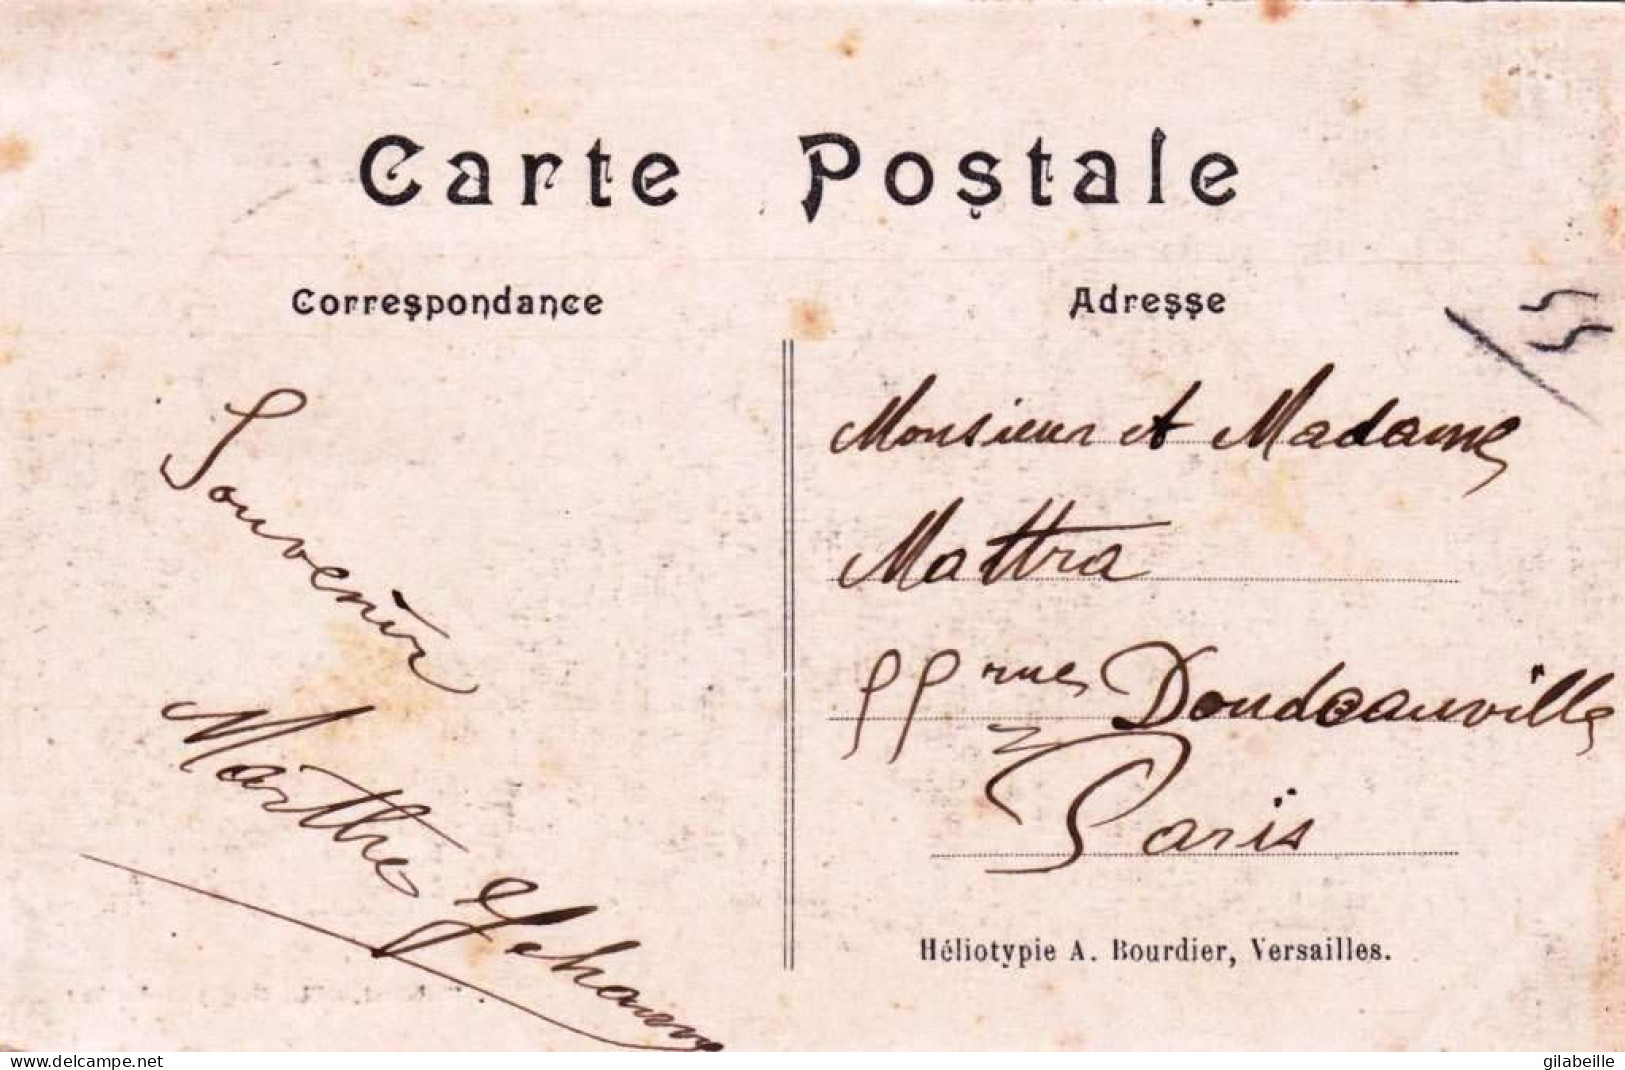 Carte Postale
Correspondance
Souvenir
Marthe
Adresse
Monsieur et Madame
Mattra
55 rue Doudeauville
Paris
Héliotypie A. Bourdier, Versailles.
www.delcampe.net
gilabeille